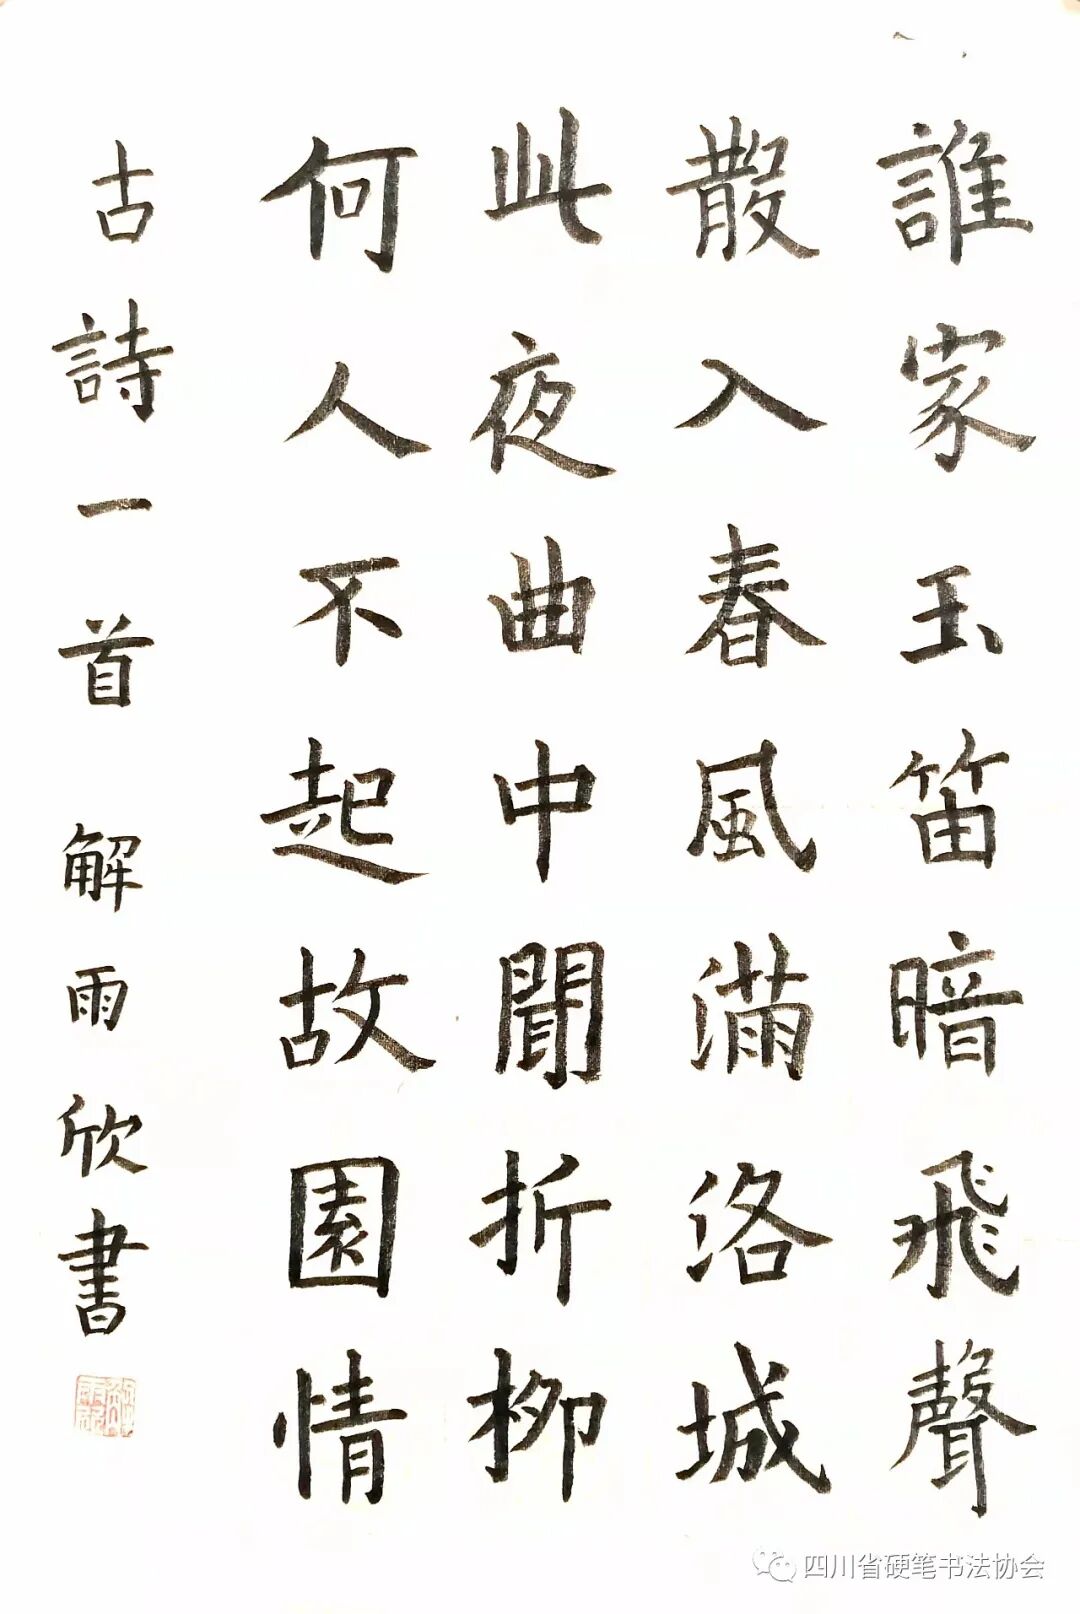 誰家玉笛暗飛聲
散入春風滿洛城
此夜曲中聞折柳
何人不起故園情
古詩一首 解雨欣書
四川省硬笔书法协会